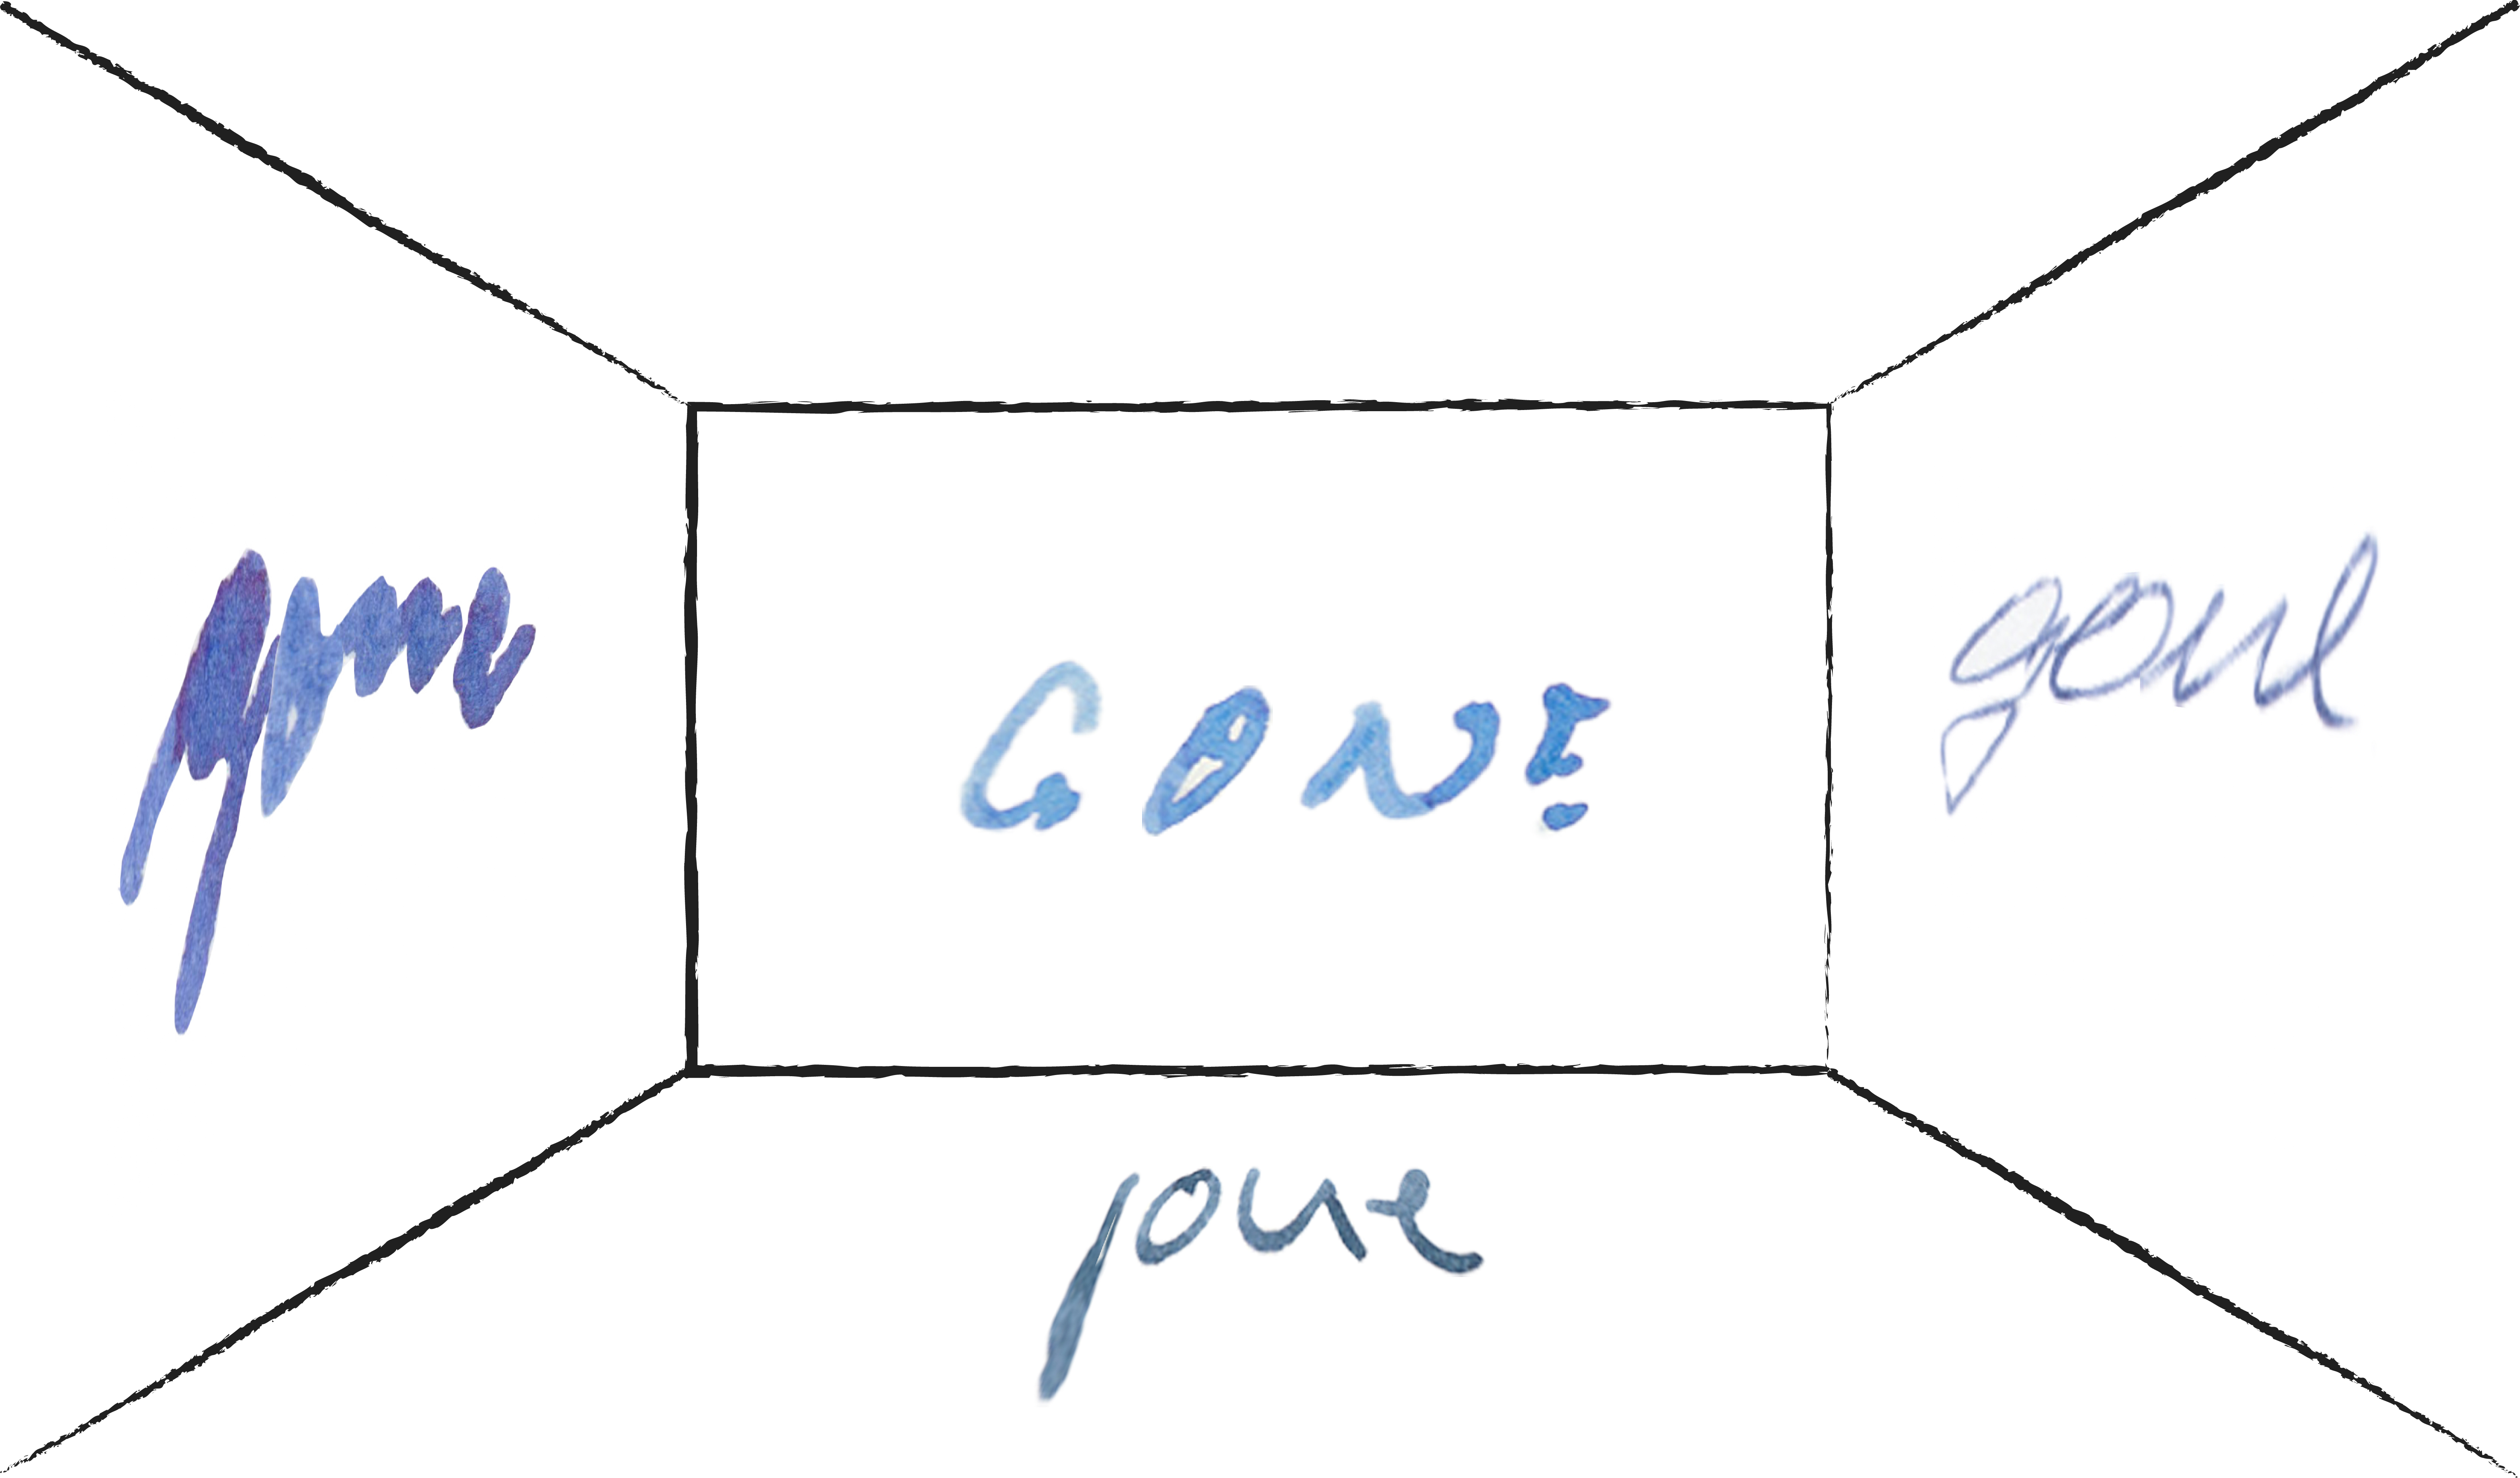 gone
GONE
gone
gone